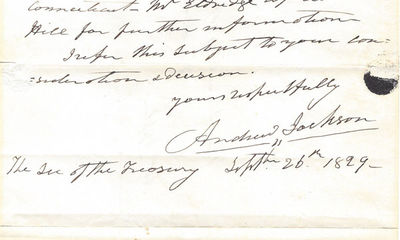 Connecticut Mr Eldredge
Hill for further information
I refer this subject to your con-
=sideration & decision.
yours respectfully
Andrew Jackson
The Sec of the Treasury Septbr. 26th 1829_